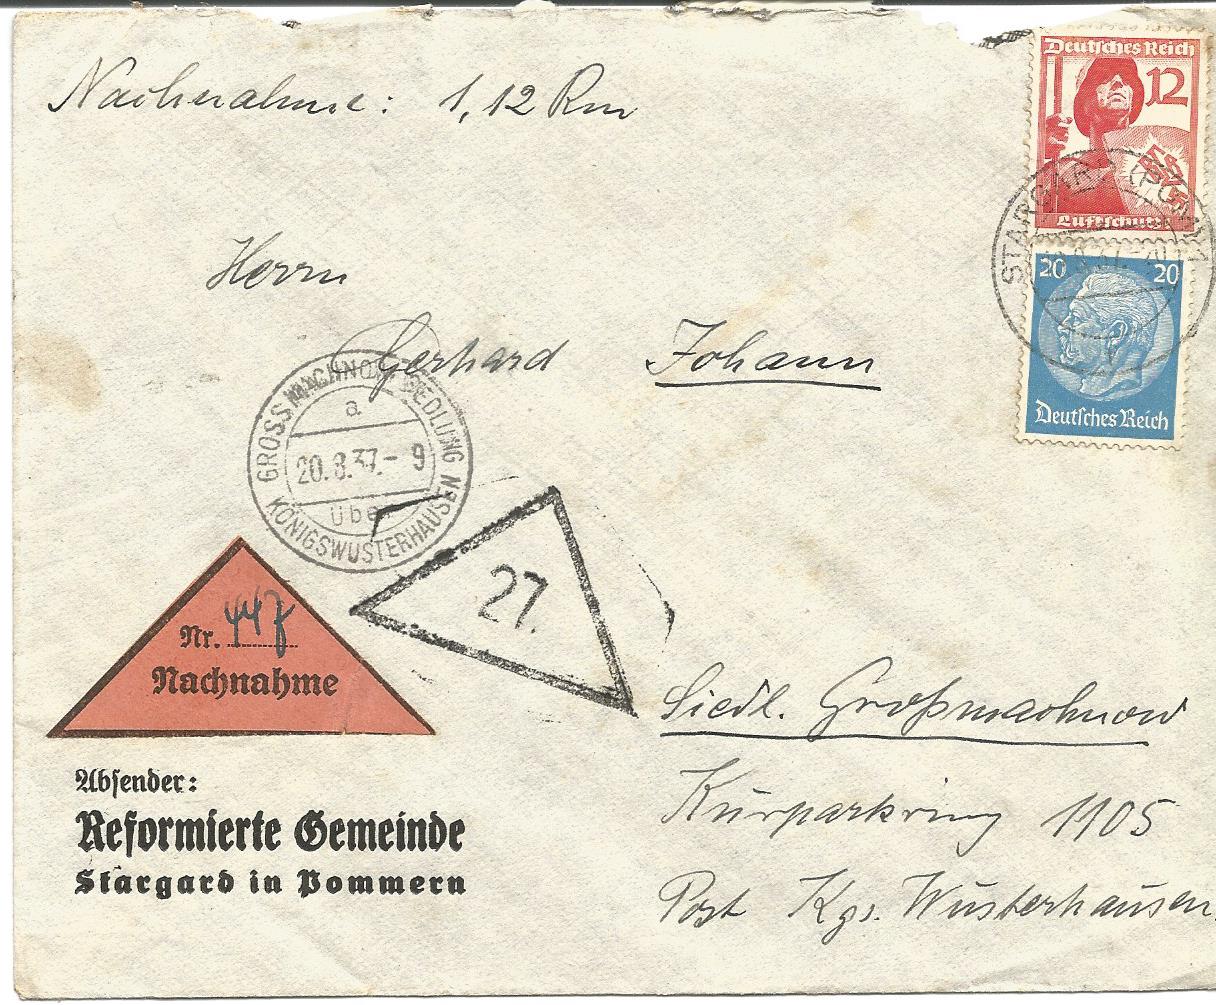 Nachnahme: 1,12 Rm
Deutsches Reich
12
Luftschutz
STARGARD (POM)
20 20
Deutsches Reich
Herrn
Gerhard Johann
GROSS MACHNOW SIEDLUNG
a
20.8.37.- 9
über
KÖNIGSWUSTERHAUSEN
27.
Nr. 447
Nachnahme
Siedl. Großmachnow
Kurparkring 1105
Post Kgs. Wusterhausen
Absender:
Reformierte Gemeinde
Stargard in Pommern